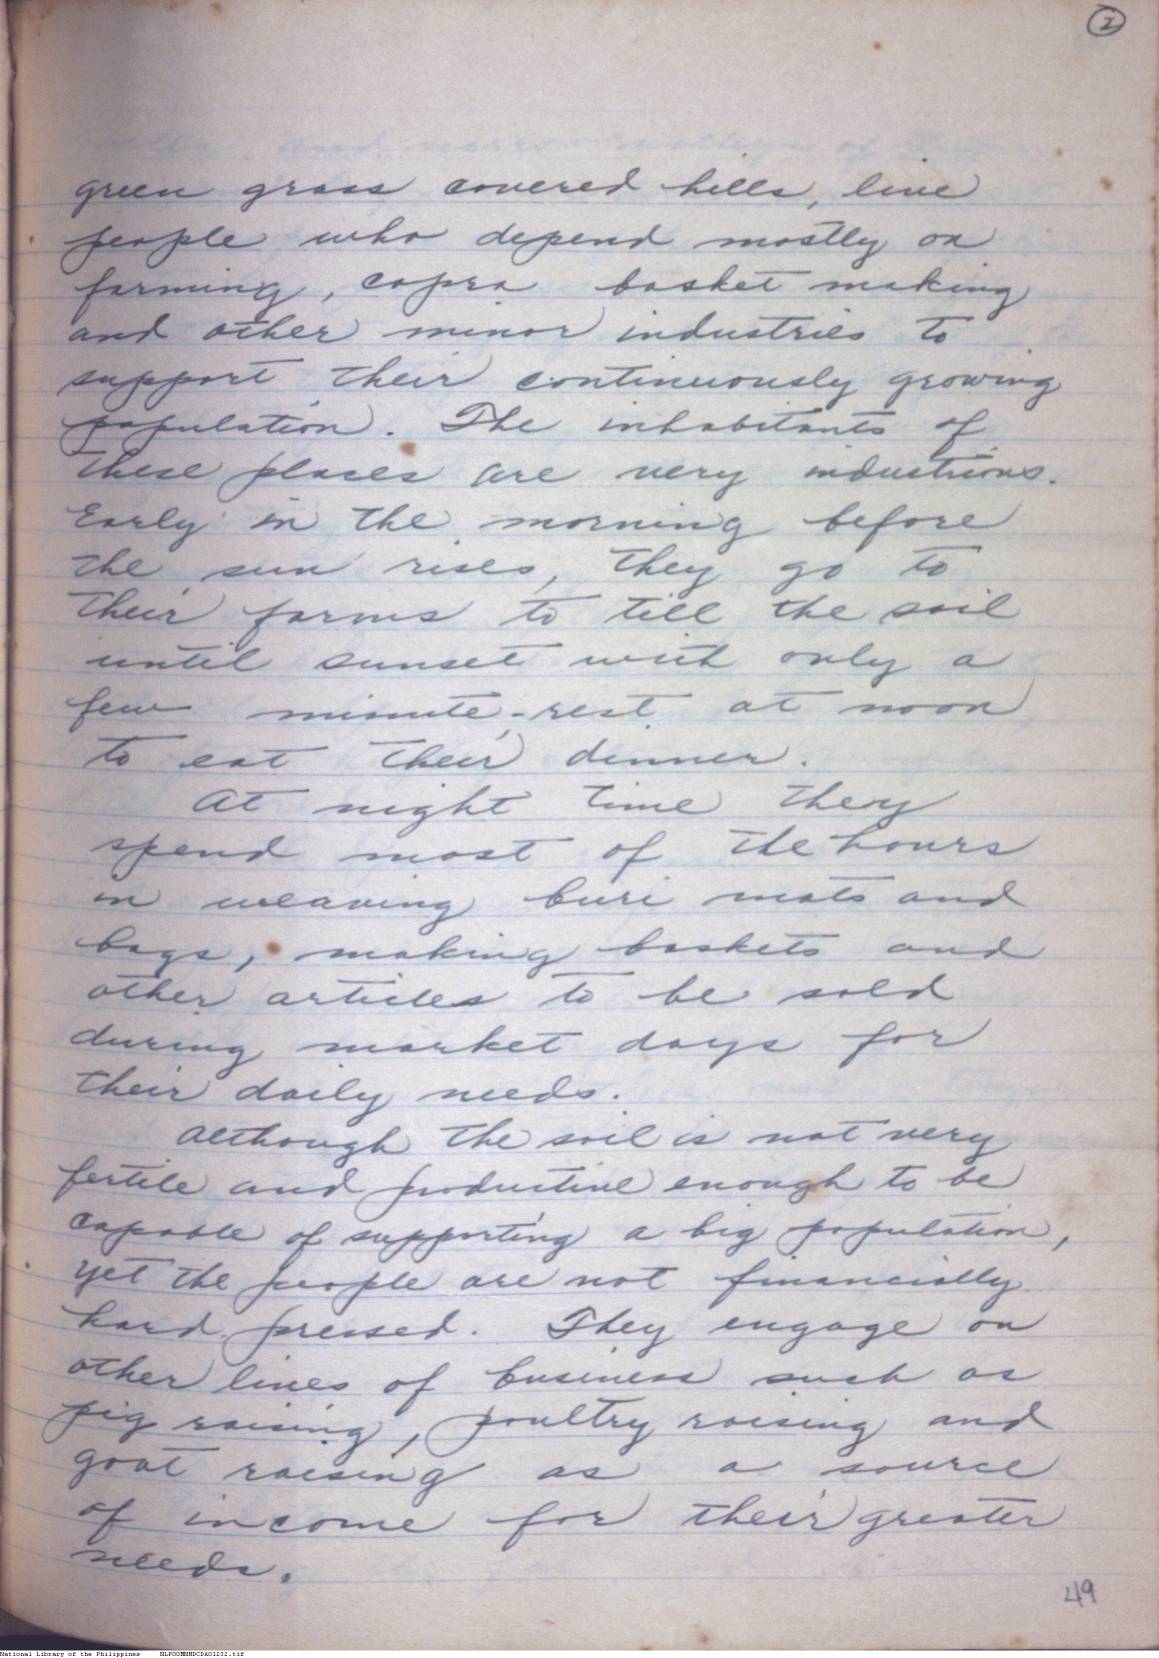 2
green grass covered hills, live
people who depend mostly on
farming, copra basket making
and other minor industries to
support their continuously growing
population. The inhabitants of
these places are very industrious.
Early in the morning before
the sun rises, they go to
their farms to till the soil
until sunset with only a
few minute-rest at noon
to eat their dinner.
At night time they
spend most of the hours
in weaving buri mats and
bags, making baskets and
other articles to be sold
during market days for
their daily needs.
Although the soil is not very
fertile and productive enough to be
capable of supporting a big population,
yet the people are not financially
hard pressed. They engage on
other lines of business such as
pig raising, poultry raising and
goat raising as a source
of income for their greater
needs.
49
National Library of the Philippines NLPOOMNHDCDA01232.tif